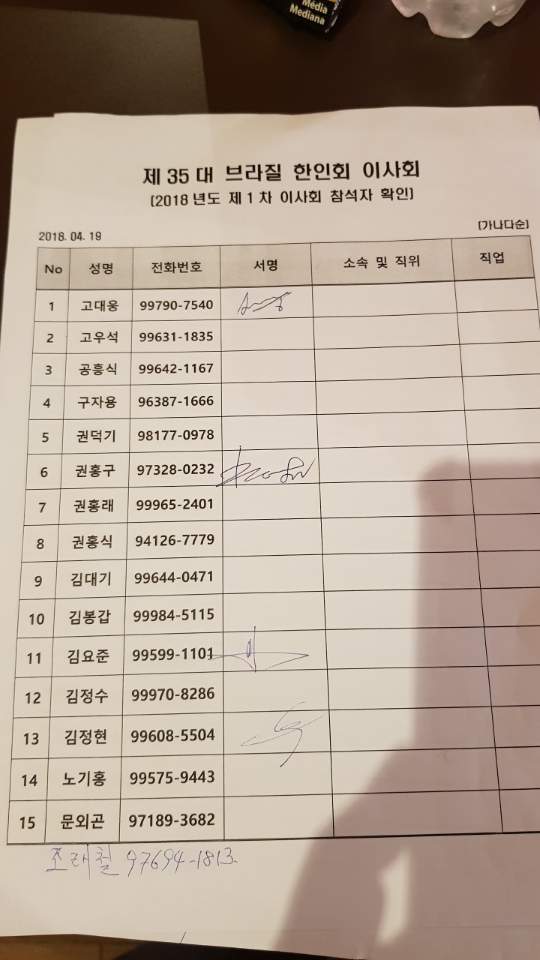 Média
Mediana
제 35 대 브라질 한인회 이사회
(2018 년도 제 1 차 이사회 참석자 확인)
2018. 04. 19
(가나다순)
No 성명 전화번호 서명 소속 및 직위 직업
1 고대웅 99790-7540
2 고우석 99631-1835
3 공흥식 99642-1167
4 구자용 96387-1666
5 권덕기 98177-0978
6 권홍구 97328-0232
7 권홍래 99965-2401
8 권홍식 94126-7779
9 김대기 99644-0471
10 김봉갑 99984-5115
11 김요준 99599-1101
12 김정수 99970-8286
13 김정현 99608-5504
14 노기홍 99575-9443
15 문외곤 97189-3682
조래철 97694-1813